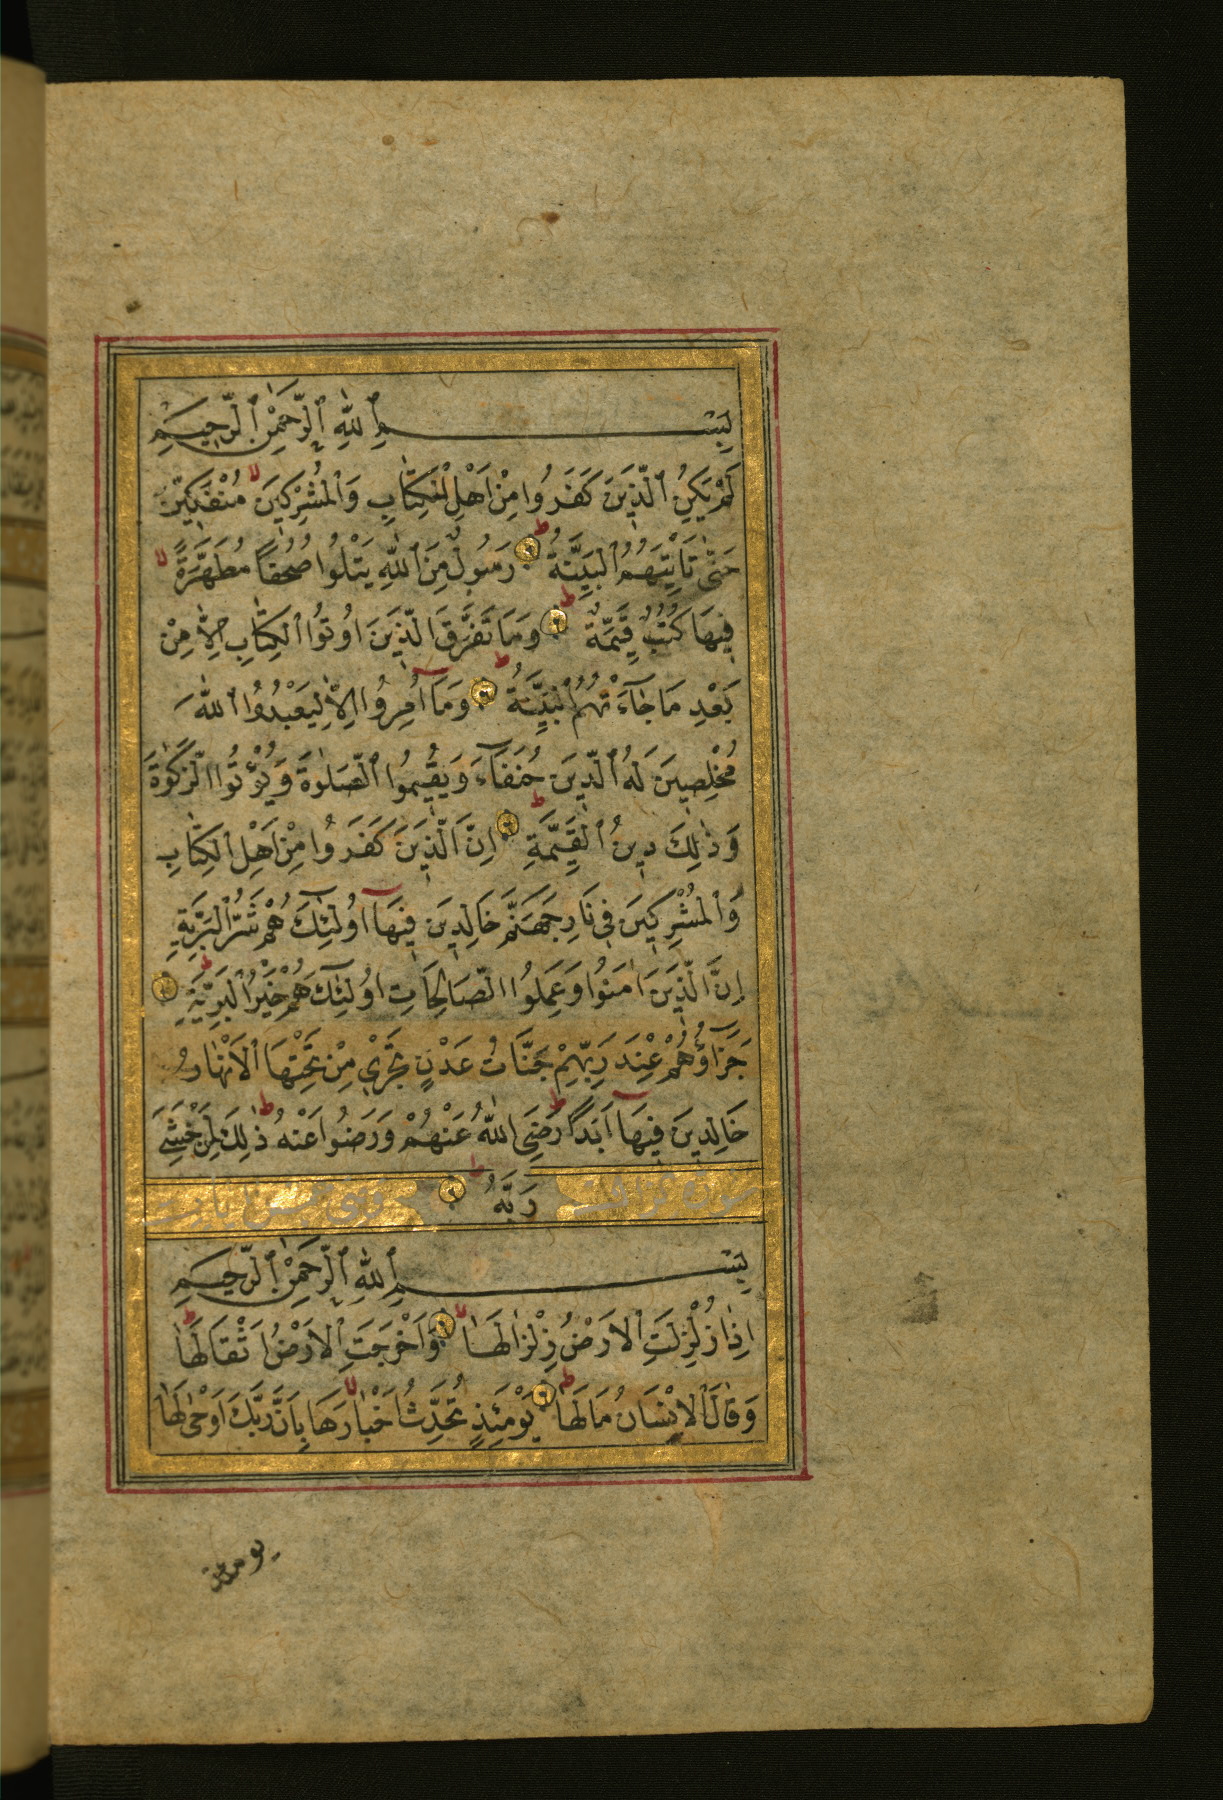 بِسْمِ ٱللّٰهِ ٱلرَّحْمٰنِ ٱلرَّحِيمِ
لَمْ يَكُنِ ٱلَّذِينَ كَفَرُوا مِنْ اَهْلِ الْكِتَابِ وَٱلْمُشْرِكِينَ مُنْفَكِّينَ
حَتّٰى تَاْتِيَهُمُ ٱلْبَيِّنَةُ رَسُولٌ مِنَ ٱللّٰهِ يَتْلُوا صُحُفًا مُطَهَّرَةً
فِيهَا كُتُبٌ قَيِّمَةٌ وَمَا تَفَرَّقَ الَّذِينَ اُوتُوا ٱلْكِتَابَ اِلَّا مِنْ
بَعْدِ مَا جَآءَتْهُمُ ٱلْبَيِّنَةُ وَمَآ اُمِرُوا اِلَّا لِيَعْبُدُوا ٱللّٰهَ
مُخْلِصِينَ لَهُ ٱلدِّينَ حُنَفَآءَ وَيُقِيمُوا ٱلصَّلٰوةَ وَيُؤْتُوا الزَّكٰوةَ
وَذٰلِكَ دِينُ ٱلْقَيِّمَةِ اِنَّ الَّذِينَ كَفَرُوا مِنْ اَهْلِ ٱلْكِتَابِ
وَٱلْمُشْرِكِينَ فِي نَارِ جَهَنَّمَ خَالِدِينَ فِيهَآ اُولٰٓئِكَ هُمْ شَرُّ الْبَرِيَّةِ
اِنَّ الَّذِينَ اٰمَنُوا وَعَمِلُوا الصَّالِحَاتِ اُولٰٓئِكَ هُمْ خَيْرُ الْبَرِيَّةِ
جَزَآؤُهُمْ عِنْدَ رَبِّهِمْ جَنَّاتُ عَدْنٍ تَجْرِي مِنْ تَحْتِهَا ٱلْاَنْهَارُ
خَالِدِينَ فِيهَآ اَبَدًا رَضِيَ اللّٰهُ عَنْهُمْ وَرَضُوا عَنْهُ ذٰلِكَ لِمَنْ خَشِيَ
رَبَّهُ
بِسْمِ ٱللّٰهِ ٱلرَّحْمٰنِ ٱلرَّحِيمِ
اِذَا زُلْزِلَتِ ٱلْاَرْضُ زِلْزَالَهَا وَاَخْرَجَتِ ٱلْاَرْضُ اَثْقَالَهَا
وَقَالَ ٱلْاِنْسَانُ مَا لَهَا يَوْمَئِذٍ تُحَدِّثُ اَخْبَارَهَا بِاَنَّ رَبَّكَ اَوْحٰى لَهَا
يومئذ